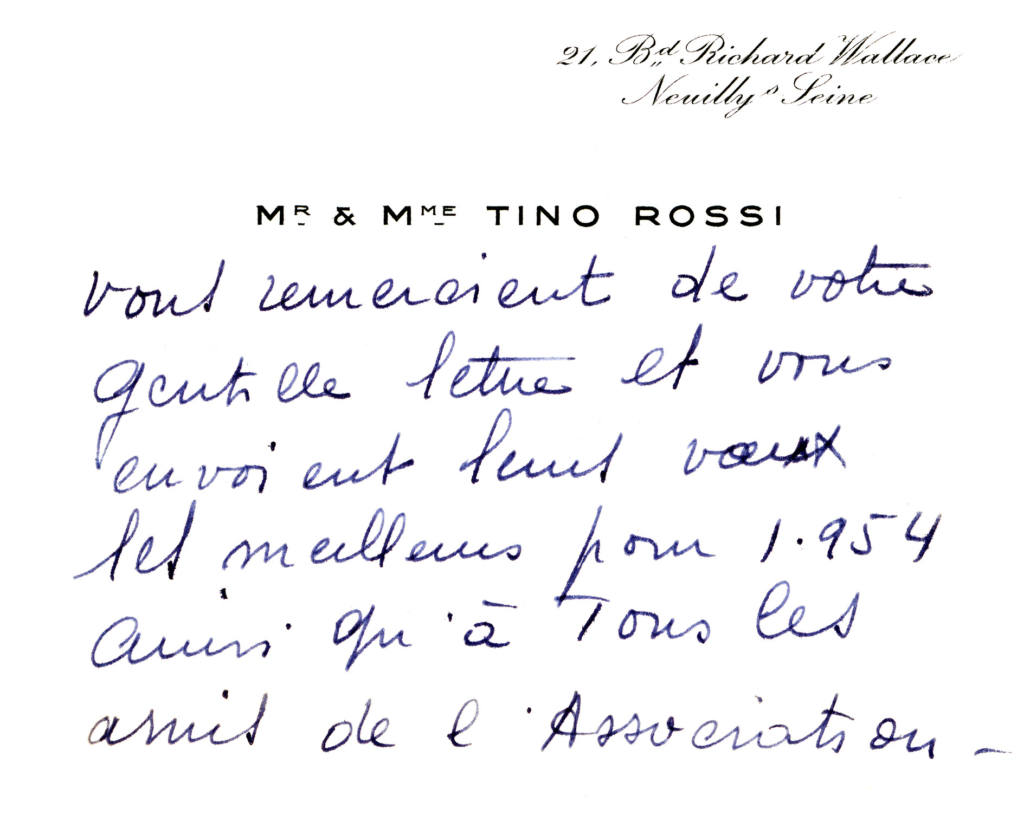 21, Bd Richard Wallace
Neuilly s Seine
MR & MME TINO ROSSI
vous remercient de votre
gentille lettre et vous
envoient leurs vœux
les meilleurs pour 1.954
ainsi qu'à Tous les
amis de l'Association -